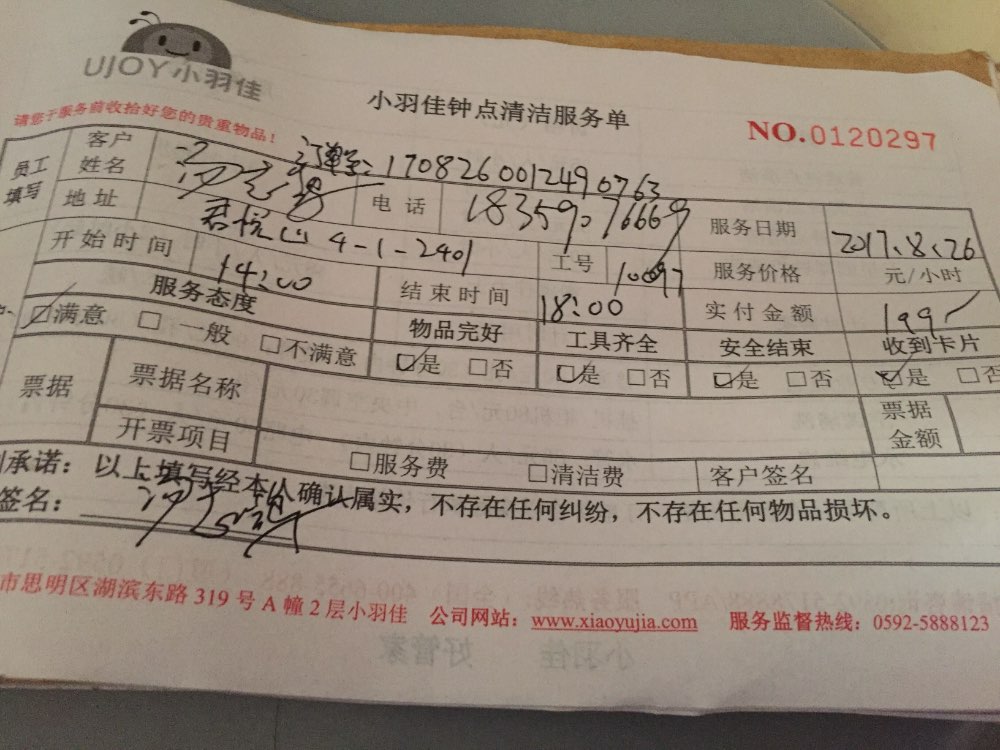 UJOY小羽佳
小羽佳钟点清洁服务单
NO.0120297
请您于服务前收拾好您的贵重物品！
员工填写
客户姓名
订单号：1708260012490763
地址
君悦山 4-1-2401
电话
18359076669
服务日期
2017.8.26
开始时间
14:00
工号
10097
服务价格
元/小时
结束时间
18:00
实付金额
199
服务态度
物品完好
工具齐全
安全结束
收到卡片
☑满意 □一般 □不满意
☑是 □否
☑是 □否
☑是 □否
☑是 □否
票据
票据名称
票据金额
开票项目
□服务费 □清洁费
客户签名
承诺：以上填写经本人确认属实，不存在任何纠纷，不存在任何物品损坏。
签名：
市思明区湖滨东路 319 号 A 幢 2 层小羽佳 公司网站：www.xiaoyujia.com 服务监督热线：0592-5888123